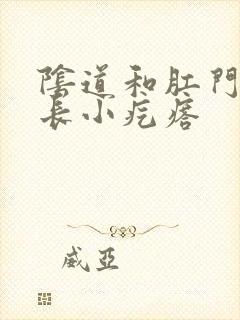 陰道和肛門
長小疙瘩
威亞